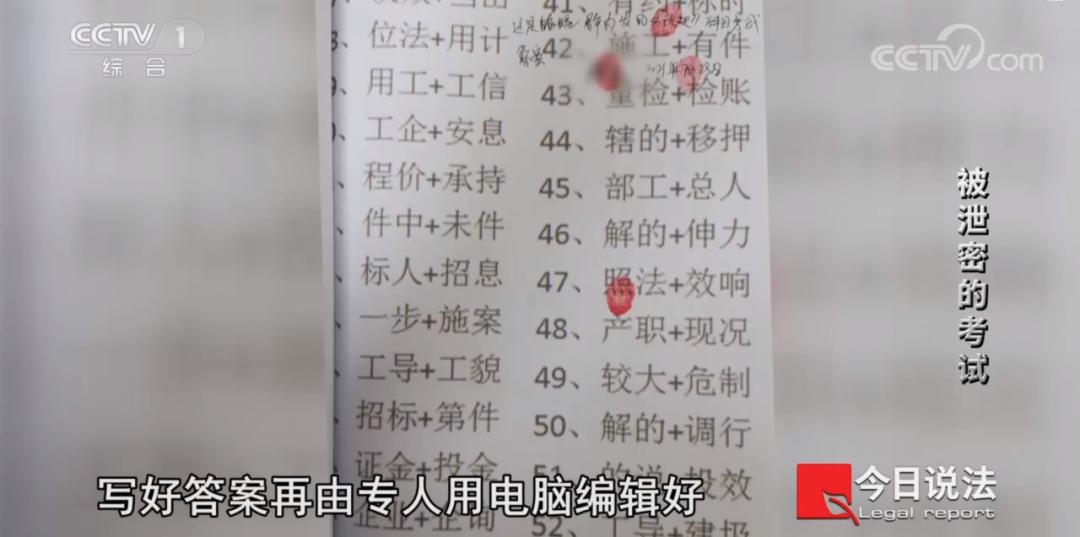 CCTV 1
综合
CCTV.com
位法+用计
用工+工信
工企+安息
程价+承持
件中+未件
标人+招息
一步+施案
工导+工貌
招标+第件
证金+投金
企业+企询
41、有约+标的
42、施工+有件
43、重检+检账
44、辖的+移押
45、部工+总人
46、解的+伸力
47、照法+效响
48、产职+现况
49、较大+危制
50、解的+调行
52、工导+建圾
答案
2021年7月28日
被泄密的考试
写好答案再由专人用电脑编辑好
今日说法
Legal report